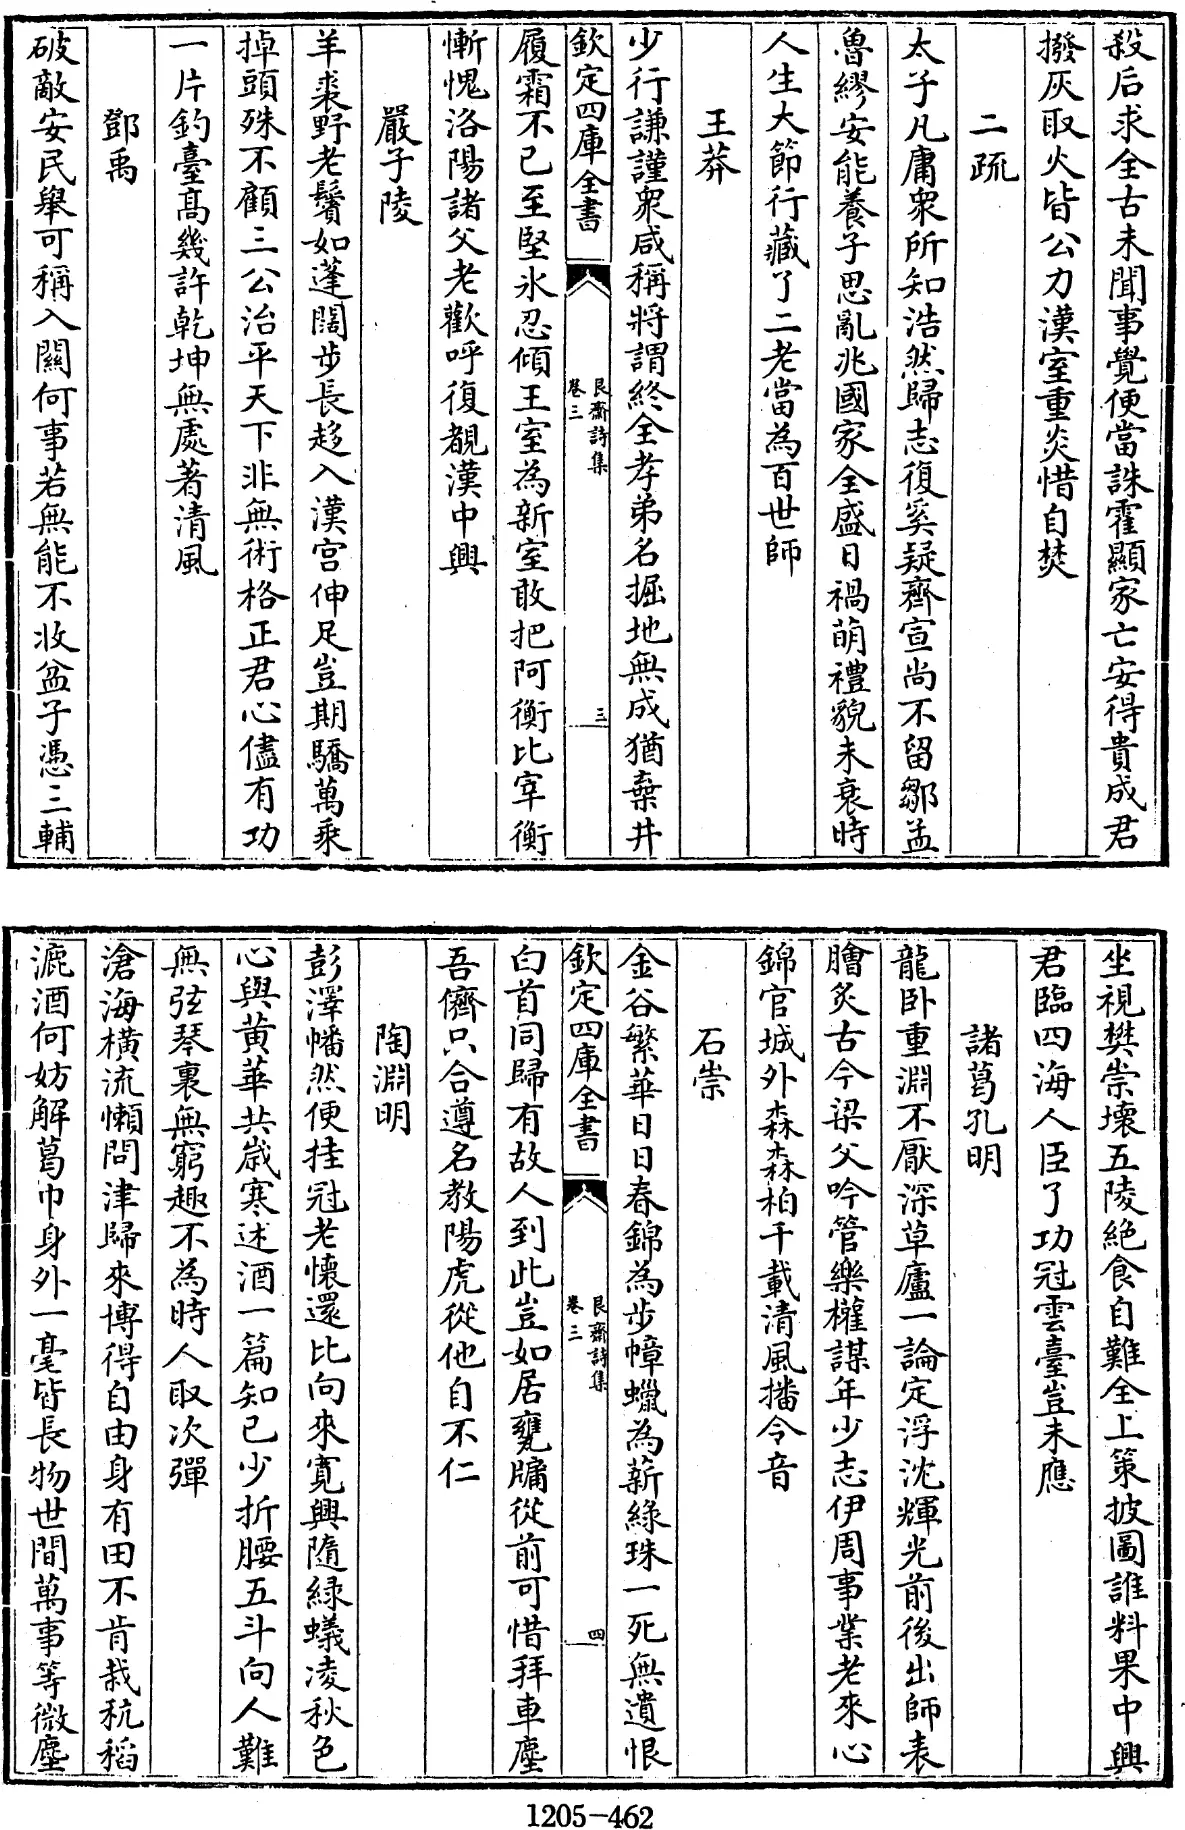 殺后求全古未聞事覺便當誅霍顯家亡安得貴成君
撥灰取火皆公力漢室重炎惜自焚
二疏
太子凡庸衆所知浩然歸志復奚疑齊宣尚不留鄒孟
魯繆安能養子思亂兆國家全盛日禍萌禮貌未衰時
人生大節行藏了二老當為百世師
王莽
少行謙謹衆咸稱將謂終全孝弟名掘地無成猶棄井
欽定四庫全書
艮齋詩集
卷三
三
履霜不已至堅氷忍傾王室為新室敢把阿衡比宰衡
慚愧洛陽諸父老歡呼復覩漢中興
嚴子陵
羊裘野老鬢如蓬闊步長趍入漢宫伸足豈期驕萬乘
掉頭殊不顧三公治平天下非無術格正君心儘有功
一片釣臺髙幾許乾坤無處著清風
鄧禹
破敵安民舉可稱入關何事若無能不收盆子憑三輔
坐視樊崇壞五陵絶食自難全上策披圖誰料果中興
君臨四海人臣了功冠雲臺豈未應
諸葛孔明
龍卧重淵不厭深草廬一論定浮沈輝光前後出師表
膾炙古今梁父吟管樂權謀年少志伊周事業老來心
錦官城外森森柏千載清風播令音
石崇
金谷繁華日日春錦為步幛蠟為薪緑珠一死無遺恨
欽定四庫全書
艮齋詩集
卷三
四
白首同歸有故人到此豈如居甕牖從前可惜拜車塵
吾儕只合遵名教陽虎從他自不仁
陶淵明
彭澤幡然便挂冠老懷還比向來寛興隨緑蟻凌秋色
心與黄華共歲寒述酒一篇知已少折腰五斗向人難
無弦琴裏無窮趣不為時人取次彈
滄海横流懶問津歸來博得自由身有田不肯栽秔稻
漉酒何妨解葛巾身外一毫皆長物世間萬事等微塵
1205-462